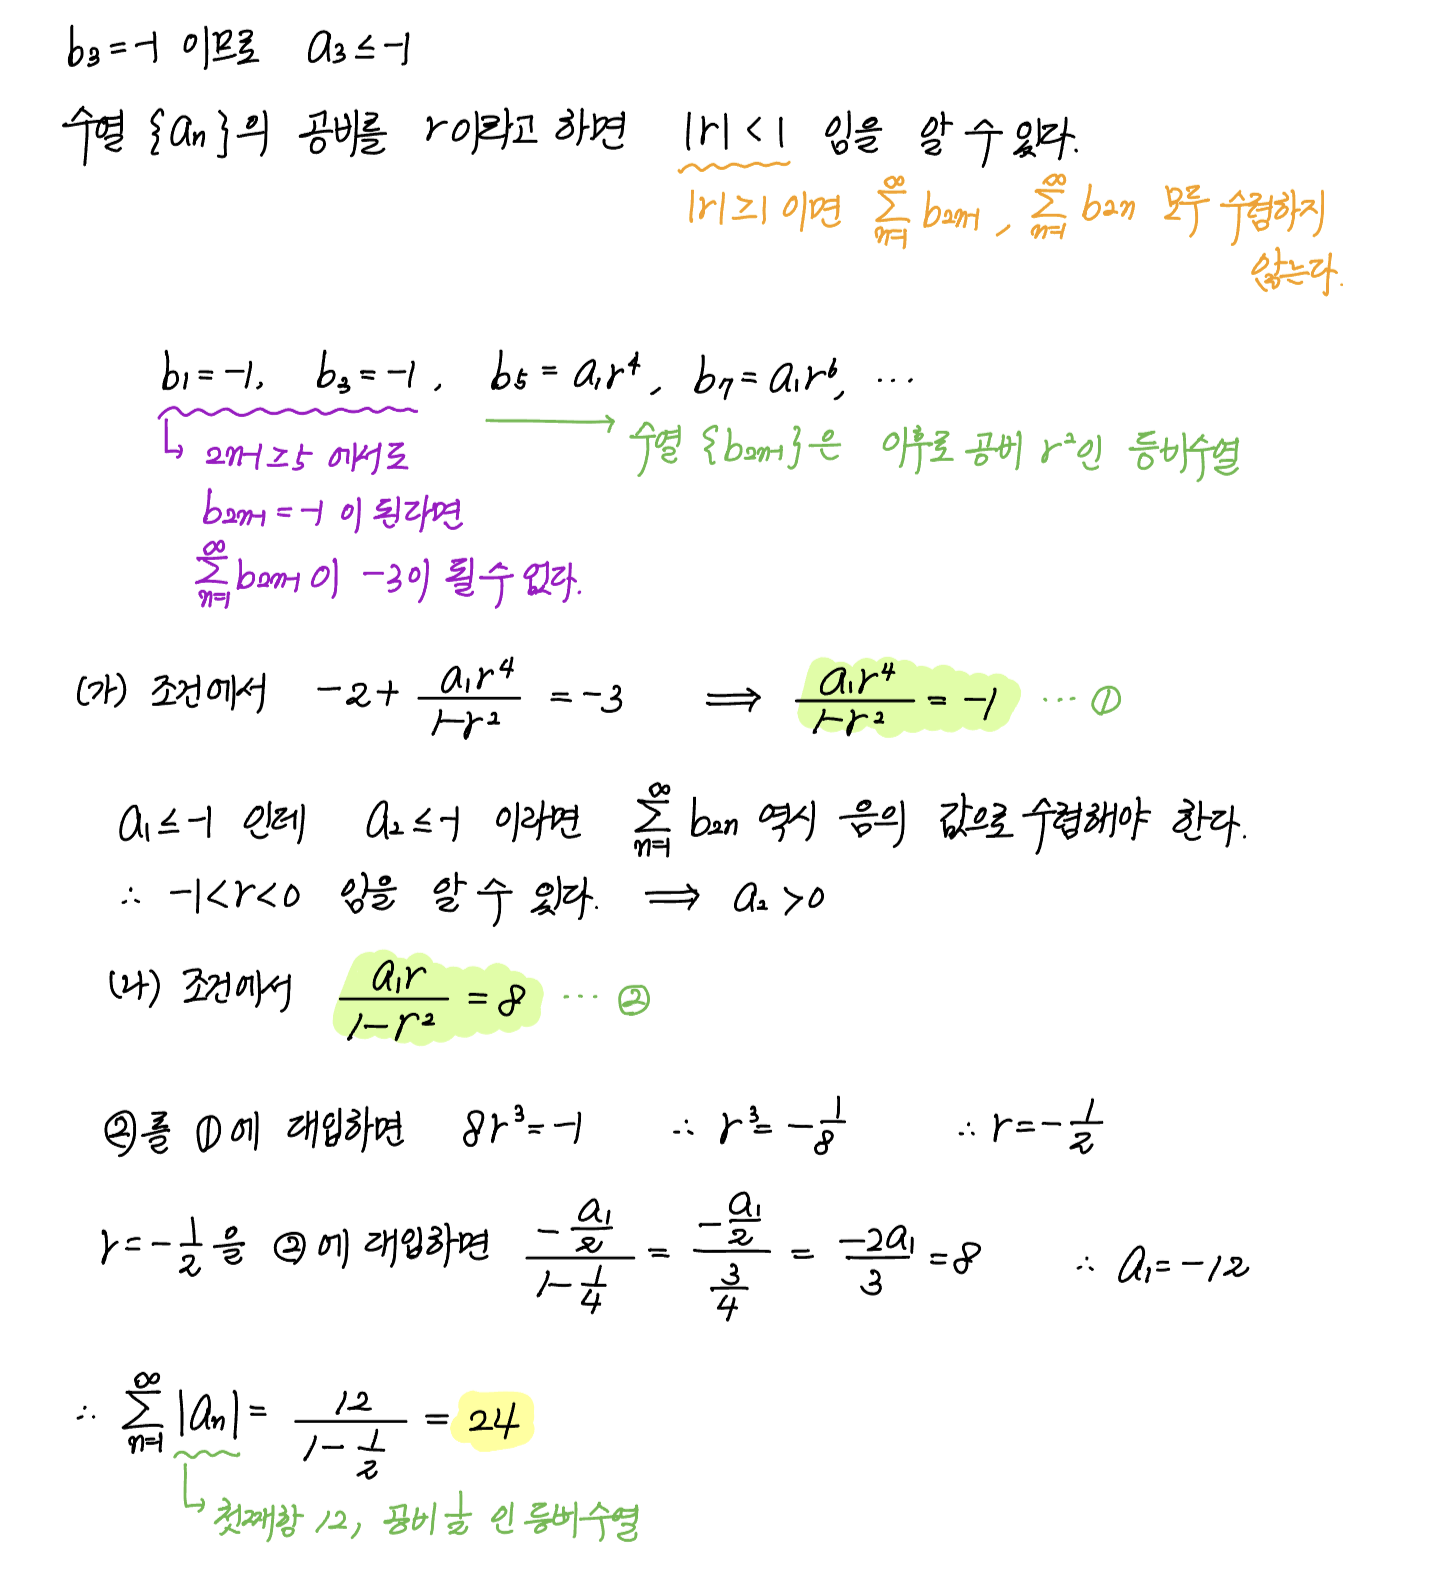 b₃ = -1 이므로 a₃ ≤ -1
수열 {aₙ}의 공비를 r이라고 하면 |r| < 1 임을 알 수 있다.
|r| ≥ 1 이면 ∑_{n=1}^{∞} b₂ₙ₋₁ , ∑_{n=1}^{∞} b₂ₙ 모두 수렴하지
않는다.
b₁ = -1, b₃ = -1 , b₅ = a₁r⁴, b₇ = a₁r⁶, ⋯
→ 수열 {b₂ₙ₋₁}은 이후로 공비 r²인 등비수열
↳ 2n-1 ≥ 5 에서도
b₂ₙ₋₁ = -1 이 된다면
∑_{n=1}^{∞} b₂ₙ₋₁ 이 -3이 될 수 없다.
(가) 조건에서 -2 + a₁r⁴/(1-r²) = -3 ⟹ a₁r⁴/(1-r²) = -1 ⋯ ①
a₁ ≤ -1 인데 a₂ ≤ -1 이라면 ∑_{n=1}^{∞} b₂ₙ 역시 음의 값으로 수렴해야 한다.
∴ -1 < r < 0 임을 알 수 있다. ⟹ a₂ > 0
(나) 조건에서 a₁r/(1-r²) = 8 ⋯ ②
②를 ①에 대입하면 8r³ = -1 ∴ r³ = -1/8 ∴ r = -1/2
r = -1/2 을 ②에 대입하면 (-a₁/2)/(1-1/4) = (-a₁/2)/(3/4) = -2a₁/3 = 8 ∴ a₁ = -12
∴ ∑_{n=1}^{∞} |aₙ| = 12/(1-1/2) = 24
↳ 첫째항 12, 공비 1/2 인 등비수열